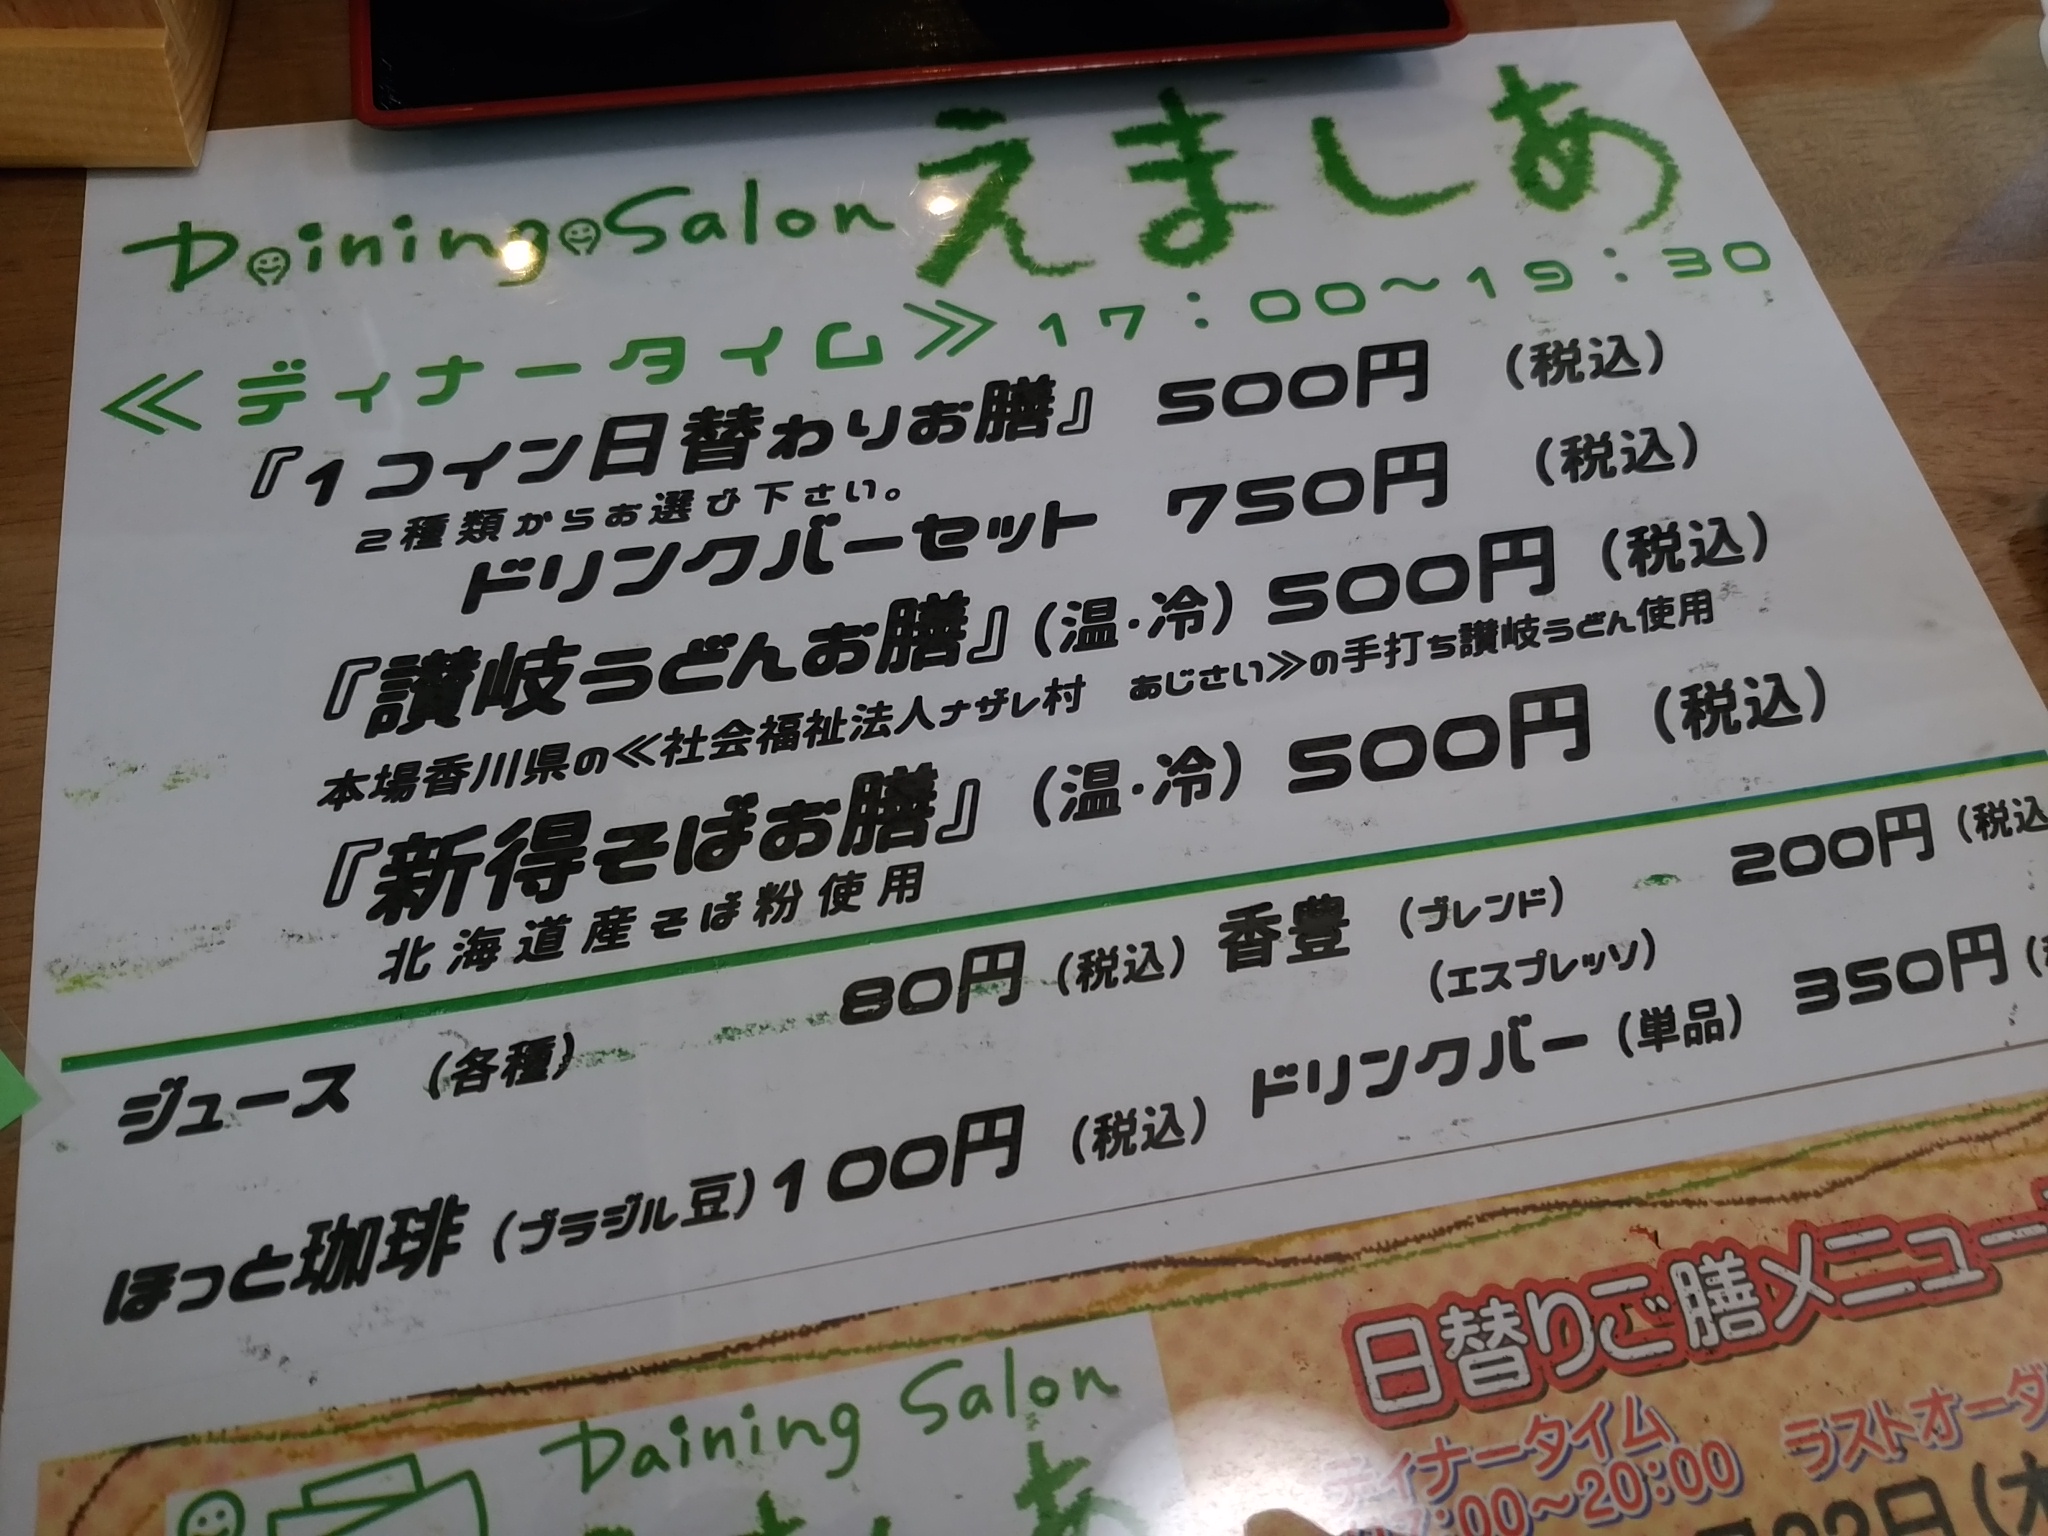 Daining Salon えましあ
≪ディナータイム≫ 17:00～19:30
『1コイン日替わりお膳』 500円 (税込)
2種類からお選び下さい。
ドリンクバーセット 750円 (税込)
『讃岐うどんお膳』(温・冷) 500円 (税込)
本場香川県の≪社会福祉法人ナザレ村 あじさい≫の手打ち讃岐うどん使用
『新得そばお膳』(温・冷) 500円 (税込)
北海道産そば粉使用
ジュース (各種) 80円 (税込) 香豊 (ブレンド) 200円 (税込
(エスプレッソ)
ほっと珈琲 (ブラジル豆) 100円 (税込) ドリンクバー (単品) 350円
日替りご膳メニュー
Daining Salon
ディナータイム ラストオーダ
:00～20:00